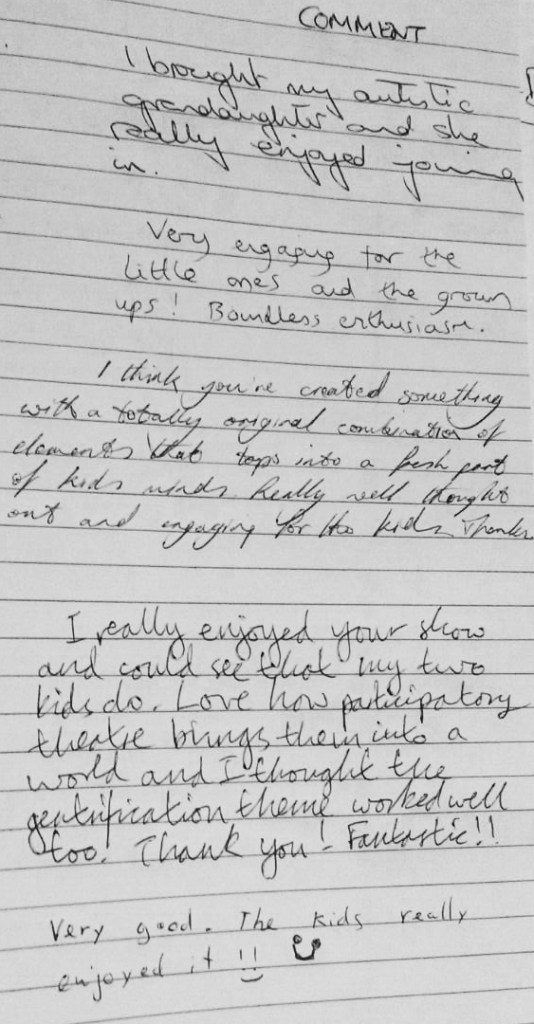 COMMENT
I brought my autistic
grandaughter and she
really enjoyed joining
in.
Very engaging for the
little ones and the grown
ups! Boundless enthusiasm.
I think you're created something
with a totally original combination of
elements that taps into a fresh part
of kids minds. Really well thought
out and engaging for the kids. Thanks.
I really enjoyed your show
and could see that my two
kids do. Love how participatory
theatre brings them into a
world and I thought the
gentrification theme worked well
too! Thank you! Fantastic!!
Very good. The kids really
enjoyed it !!